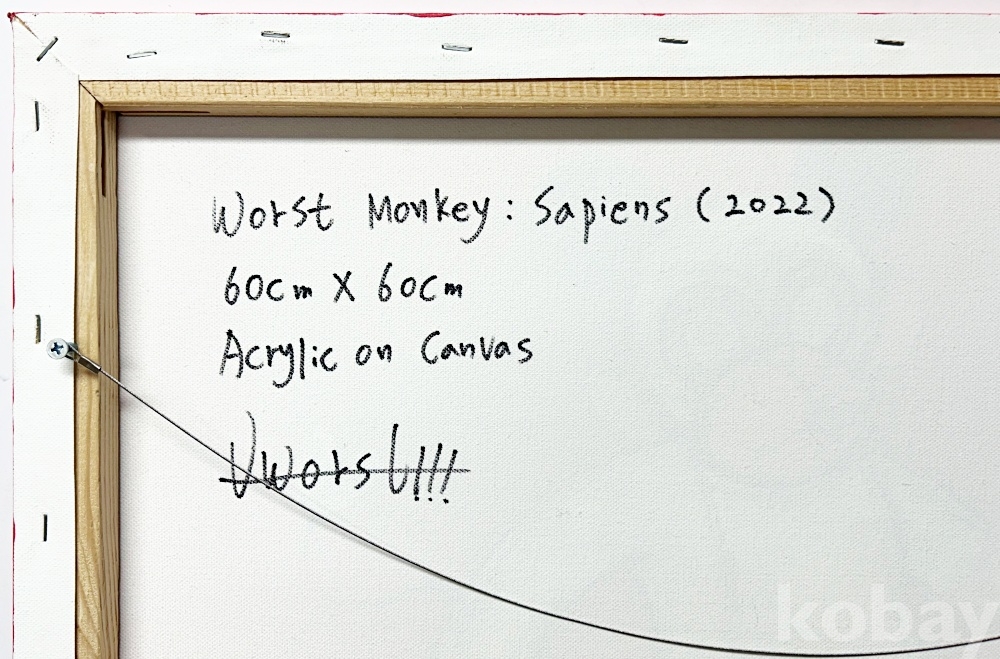 Worst Monkey : Sapiens (2022)
60cm X 60cm
Acrylic on Canvas
Worst!!!
kobay